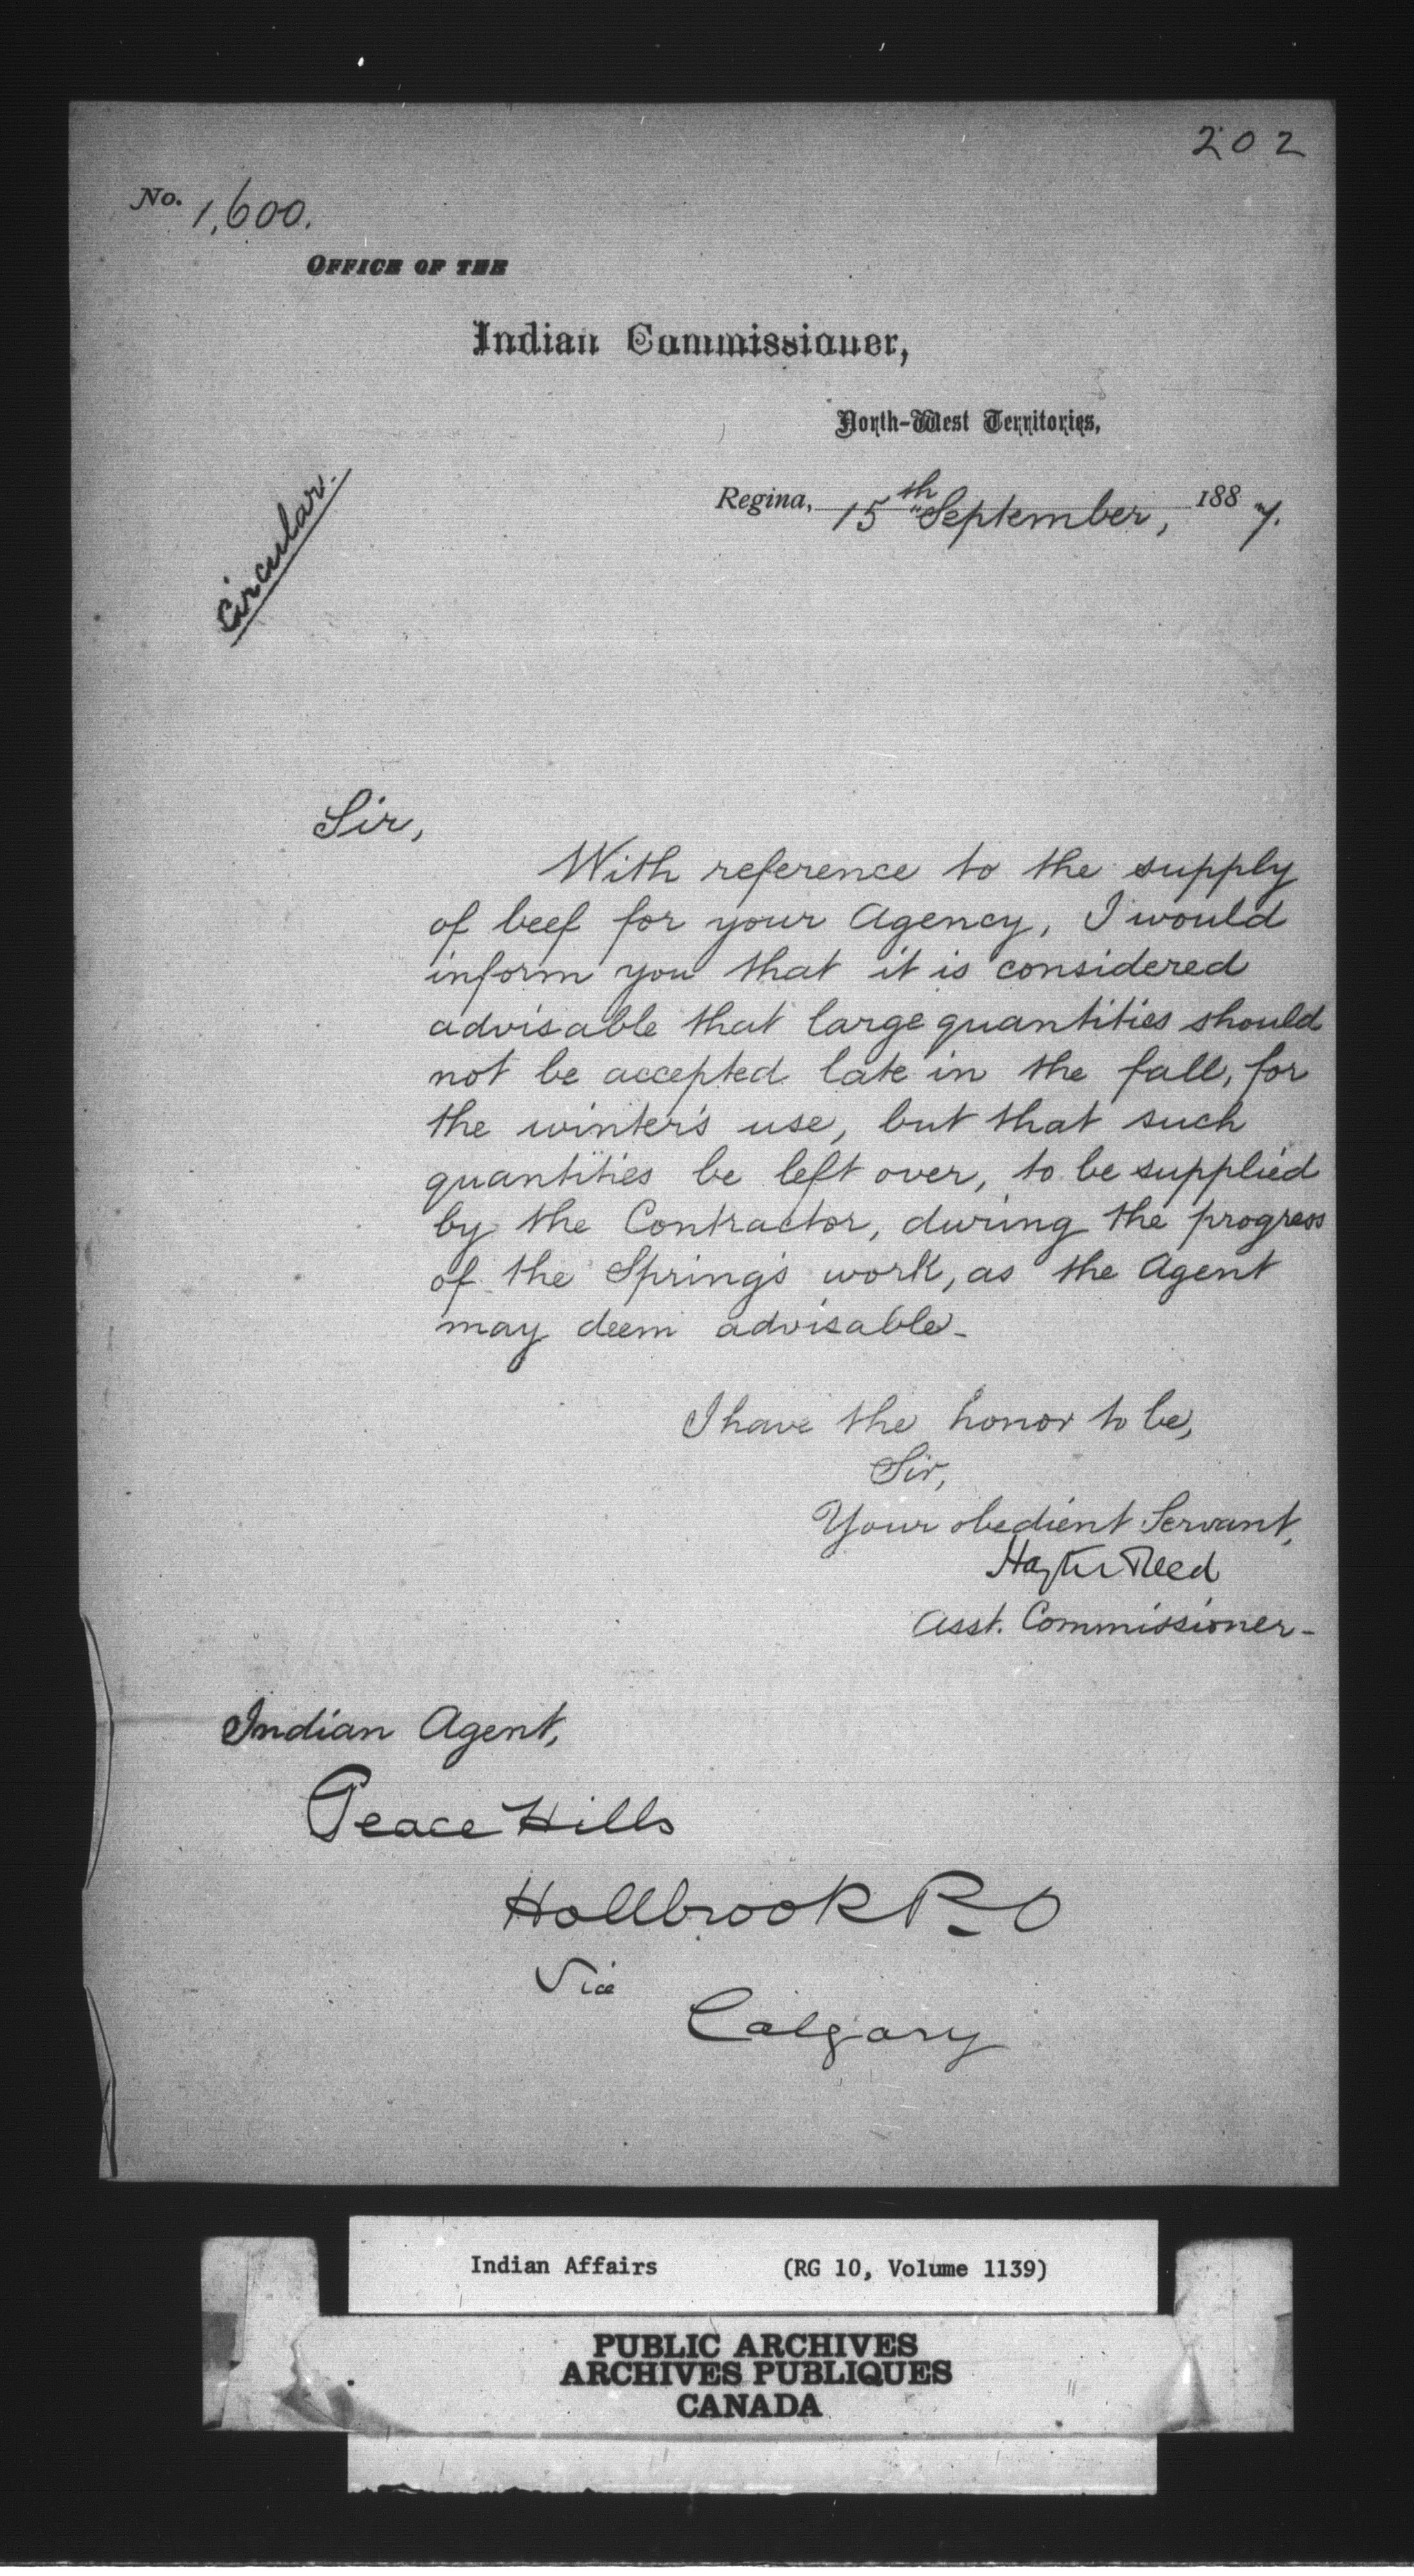 202
No. 1,600.
OFFICE OF THE
Indian Commissioner,
North-West Territories,
Regina, 15th September, 1887.
Circular.
Sir,
With reference to the supply
of beef for your Agency, I would
inform you that it is considered
advisable that large quantities should
not be accepted late in the fall, for
the winter's use, but that such
quantities be left over, to be supplied
by the Contractor, during the progress
of the Spring's work, as the Agent
may deem advisable.
I have the honor to be,
Sir,
Your obedient Servant,
Hayter Reed
Asst. Commissioner.
Indian Agent,
Peace Hills
Hollbrook P.O
Via
Calgary
Indian Affairs (RG 10, Volume 1139)
PUBLIC ARCHIVES
ARCHIVES PUBLIQUES
CANADA